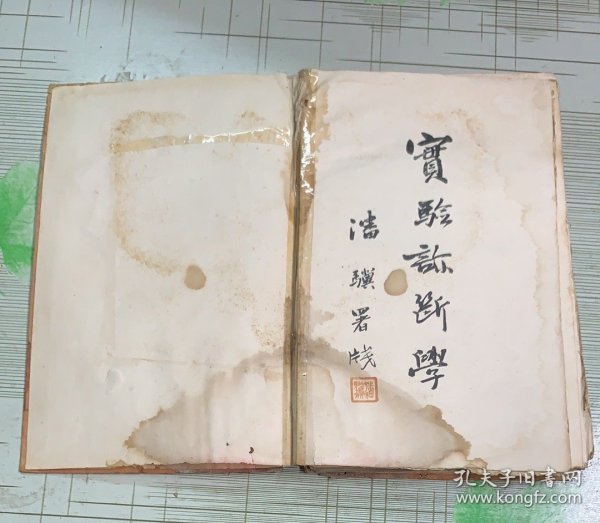 實驗診斷學
潘驥署牋
孔夫子旧书网
www.kongfz.com